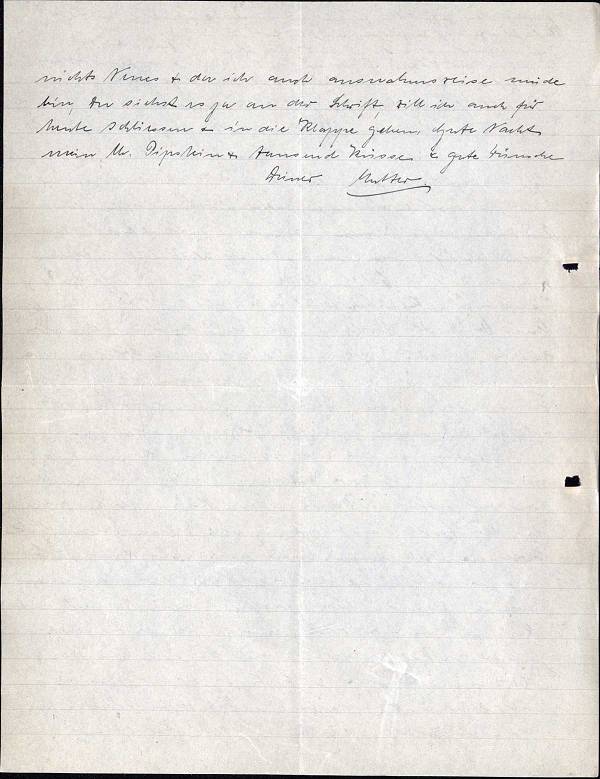 nichts Neues & da ich auch ausnahmsweise müde
bin, Du siehst es ja an der Schrift, will ich auch für
heute schliessen & in die Klappe gehen, Gute Nacht
mein kl. & tausend Küsse & gute Wünsche
Deiner Mutter